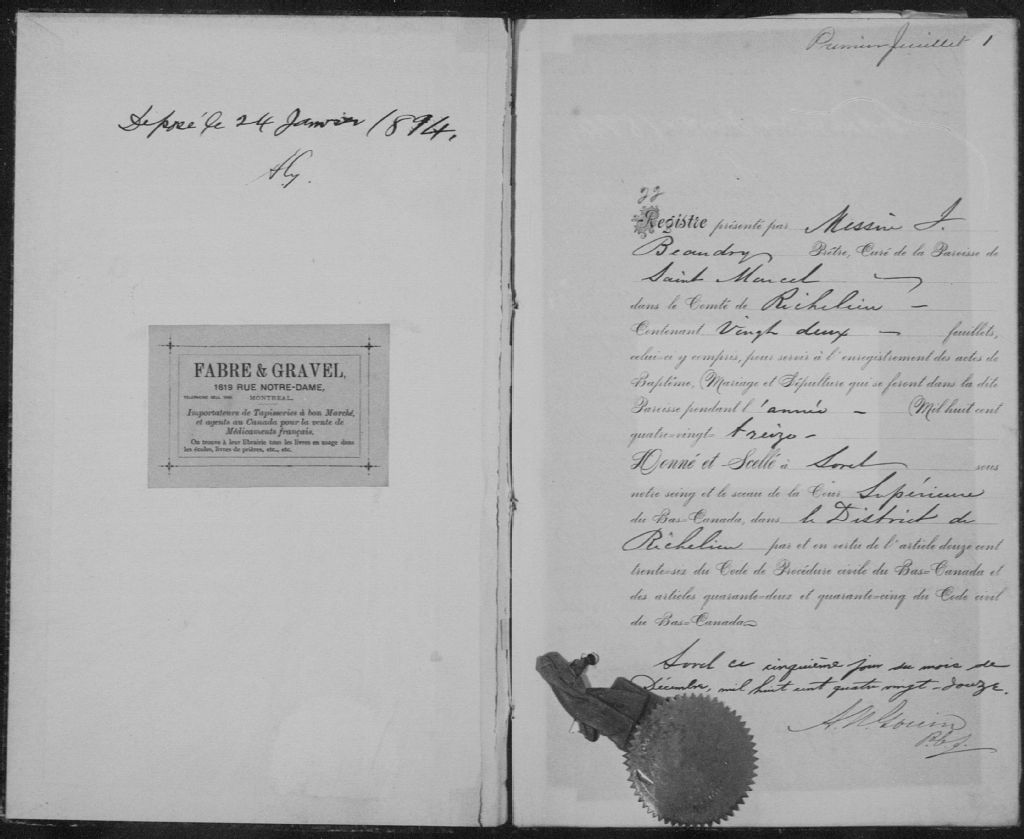 Deposé le 24 Janvier 1894.
AG.
FABRE & GRAVEL,
1619 RUE NOTRE-DAME,
MONTREAL.
Importateurs de Tapisseries à bon Marché,
et agents au Canada pour la vente de
Médicaments français.
On trouve à leur librairie tous les livres en usage dans
les écoles, livres de prières, etc., etc.
Premier feuillet 1
22
Registre présenté par Messire J.
Beaudry Prêtre, Curé de la Paroisse de
Saint Marcel
dans le Comté de Richelieu –
Contenant Vingt deux – feuillets,
celui-ci y compris, pour servir à l'enregistrement des actes de
Baptême, Mariage et Sépulture qui se feront dans la dite
Paroisse pendant l'année – Mil huit cent
quatre-vingt- treize –
Donné et Scellé à Sorel sous
notre seing et le sceau de la Cour Supérieure
du Bas-Canada, dans le District de
Richelieu par et en vertu de l'article douze cent
trente-six du Code de Procédure civile du Bas-Canada et
des articles quarante-deux et quarante-cinq du Code civil
du Bas-Canada
Sorel ce cinquième jour du mois de
Décembre, mil huit cent quatre vingt-douze.
A. N. Gouin
P.C.S.